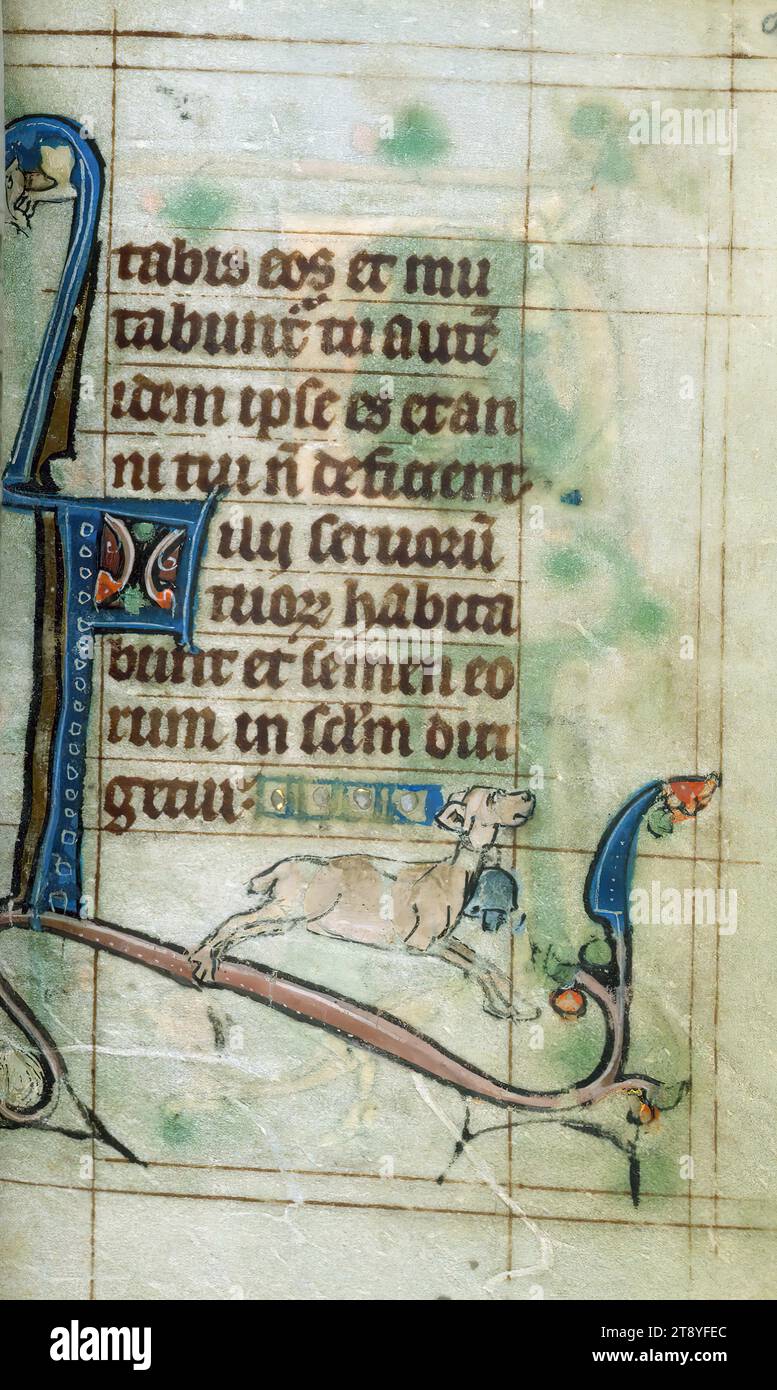 tabis eos et mu
tabunt᷑ tu aute᷑
idem ipse es et an
ni tui n̄ deficient
Filii seruoru᷑
tuoꝝ habita
bunt et semen eo
rum in sclm diri
getur.
alamy
Image ID: 2T8YFEC
www.alamy.com